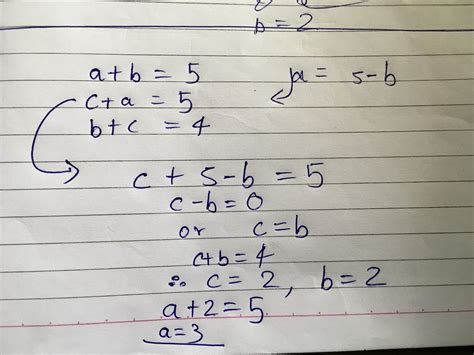 b = 2
a + b = 5    a = 5 - b
c + a = 5
b + c = 4
c + 5 - b = 5
c - b = 0
or c = b
c + b = 4
∴ c = 2, b = 2
a + 2 = 5
a = 3